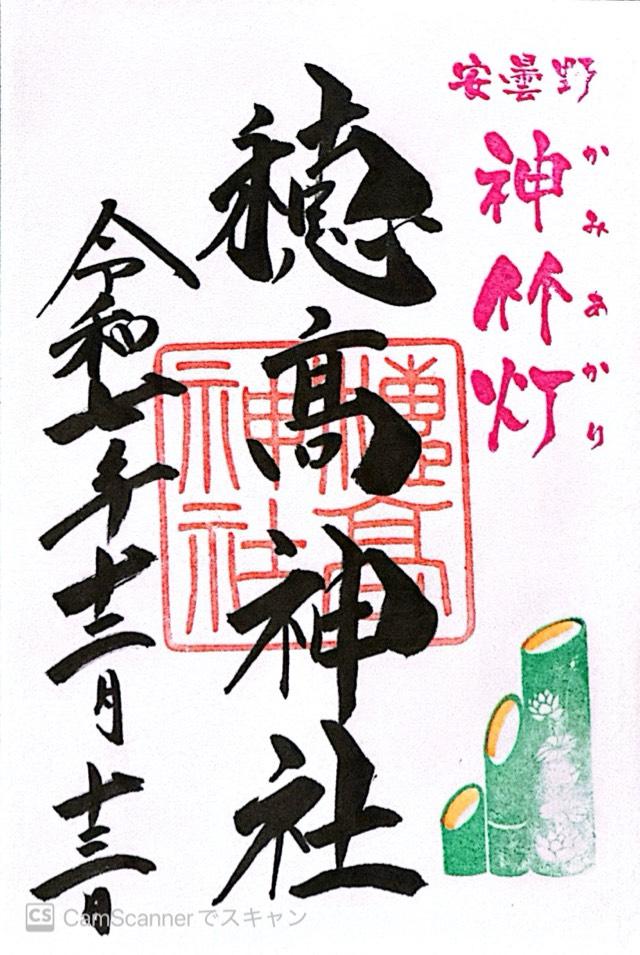 安曇野
神竹灯
かみあかり
穂髙神社
穂高
神社
令和七年十二月十三日
CS CamScannerでスキャン